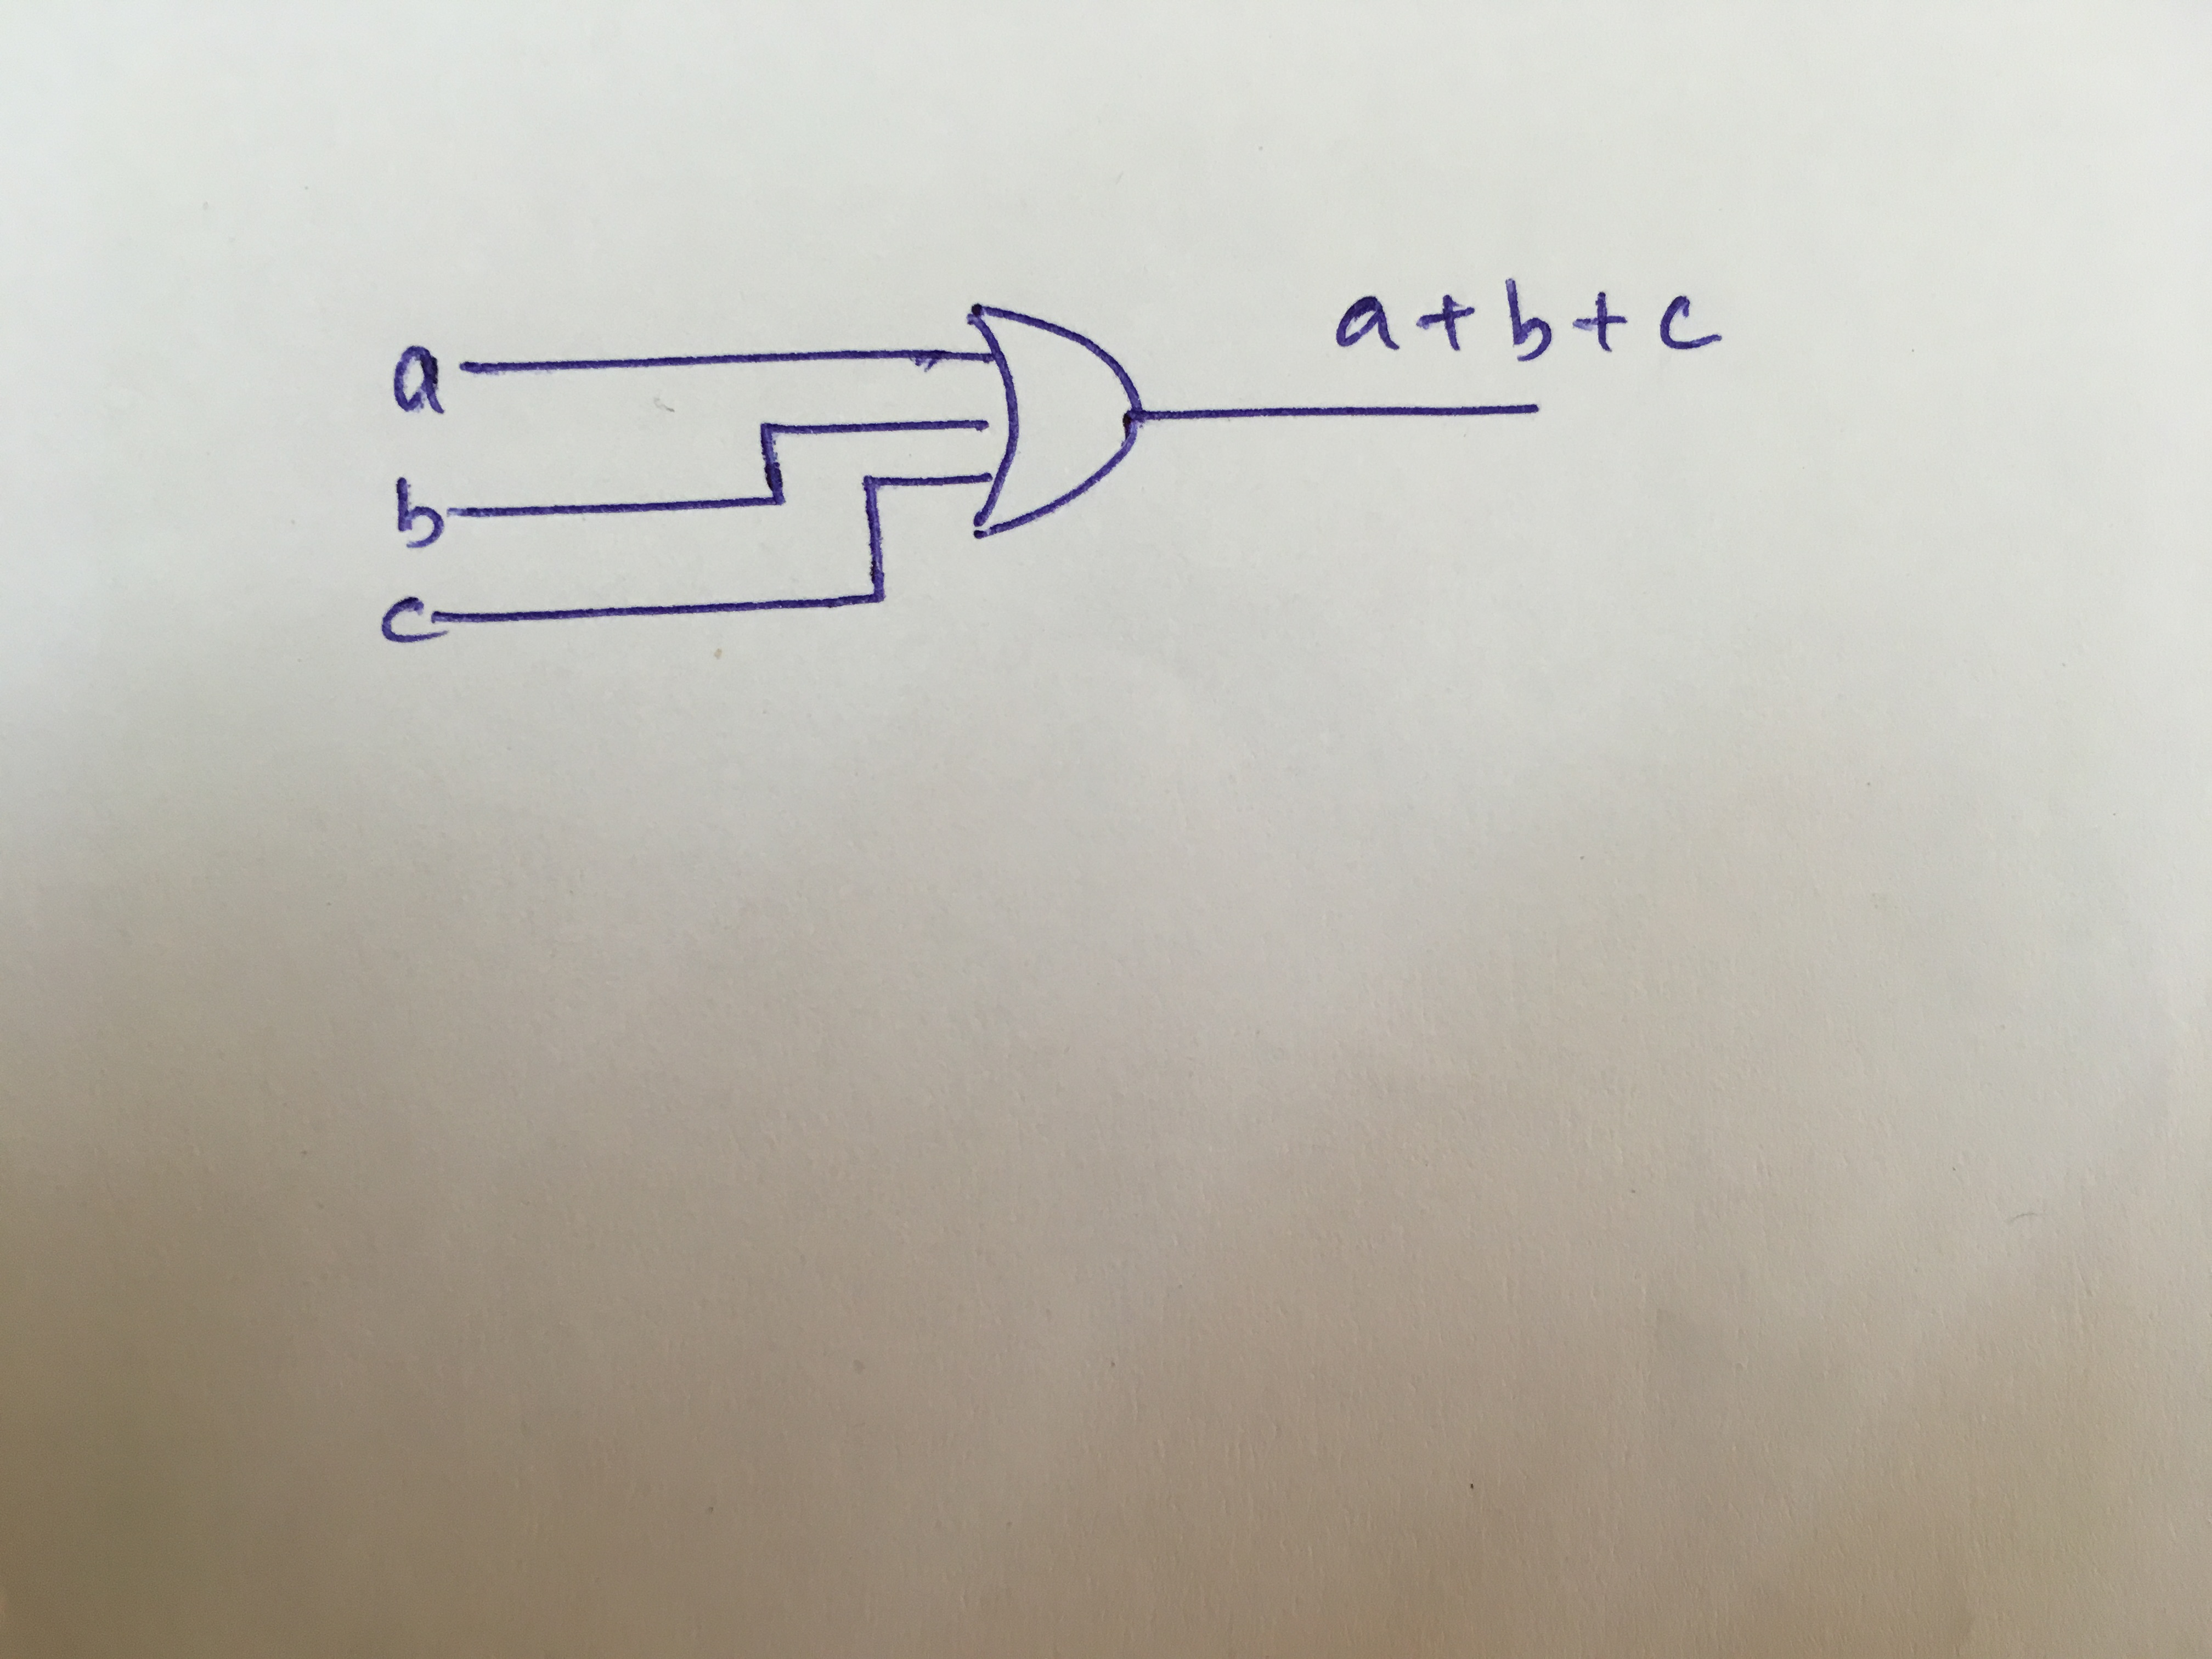 a
b
c
a + b + c